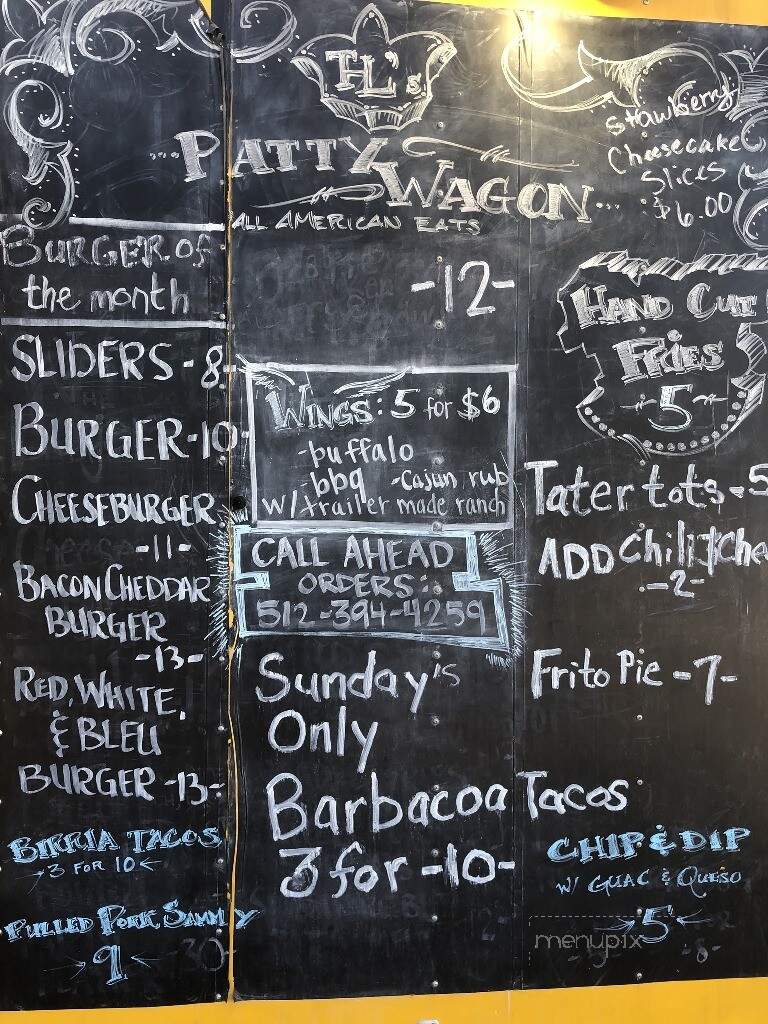 TL's
...PATTY
WAGON...
ALL AMERICAN EATS
Stawberry
Cheesecake
Slices
$6.00
BURGER OF
the month
-12-
SLIDERS - 8-
BURGER-10-
CHEESEBURGER
-11-
BACON CHEDDAR
BURGER
-13-
RED, WHITE,
& BLEU
BURGER -13-
BIRRIA TACOS
3 FOR 10
PULLED PORK SAMMY
9
WINGS: 5 for $6
-buffalo
-bbq -Cajun rub
w/trailer made ranch
CALL AHEAD
ORDERS:
512-394-4259
Sunday's
Only
Barbacoa Tacos
3 for -10-
HAND CUT
FRIES
-5-
Tater tots - 5
ADD Chili & Che
-2-
Frito Pie -7-
CHIP & DIP
W/ GUAC & QUESO
5
menupix